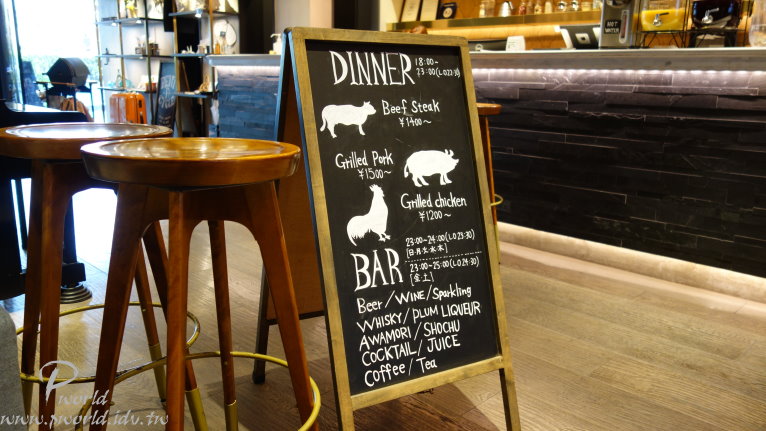 DINNER 18:00~
23:00(L.O 22:30)
Beef Steak
¥1400~
Grilled Pork
¥1500~
Grilled chicken
¥1200~
BAR 23:00-24:00(L.O 23:30)
[日月火水木]
23:00-25:00(L.O 24:30)
[金土]
Beer/WINE/Sparkling
WHISKY/PLUM LIQUEUR
AWAMORI/SHOCHU
COCKTAIL/JUICE
Coffee/Tea
HOT
WATER
P world
www.pworld.idv.tw